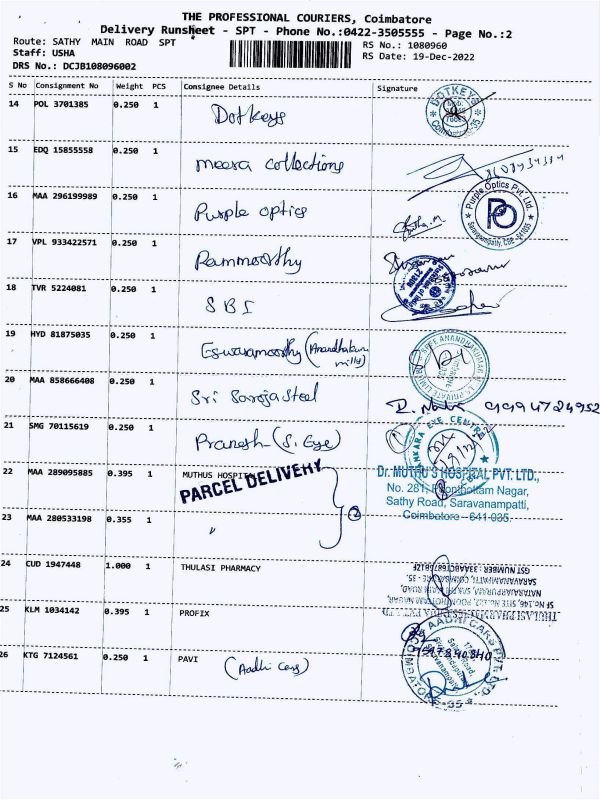 THE PROFESSIONAL COURIERS, Coimbatore
Delivery Runsheet - SPT - Phone No.:0422-3505555 - Page No.:2
Route: SATHY MAIN ROAD SPT
RS No.: 1080960
Staff: USHA
RS Date: 19-Dec-2022
DRS No.: DCJB108096002
S No Consignment No Weight PCS Consignee Details Signature
14 POL 3701385 0.250 1 Dotkeys
DOTKEYS
15 EDQ 15855558 0.250 1 meera collections
16 MAA 296199989 0.250 1 Purple optics
Purple Optics Pvt. Ltd.
Saravanampatty, CBE - 641035
17 VPL 933422571 0.250 1 Rammoorthy
18 TVR 5224081 0.250 1 SBI
19 HYD 81875035 0.250 1 Eswaramoorthy (Anandhakumar mills)
20 MAA 858666408 0.250 1 Sri Saroja Steel
21 SMG 70115619 0.250 1 Pranesh (S. Eye)
22 MAA 289095885 0.395 1 MUTHUS HOSPITAL
PARCEL DELIVERY
2
Dr. MUTHU'S HOSPITAL PVT. LTD.,
No. 281, Poonthottam Nagar,
Sathy Road, Saravanampatti,
Coimbatore - 641 035.
23 MAA 280533198 0.355 1 "
24 CUD 1947448 1.000 1 THULASI PHARMACY
25 KLM 1034142 0.395 1 PROFIX
26 KTG 7124561 0.250 1 PAVI (Aadhi Cars)